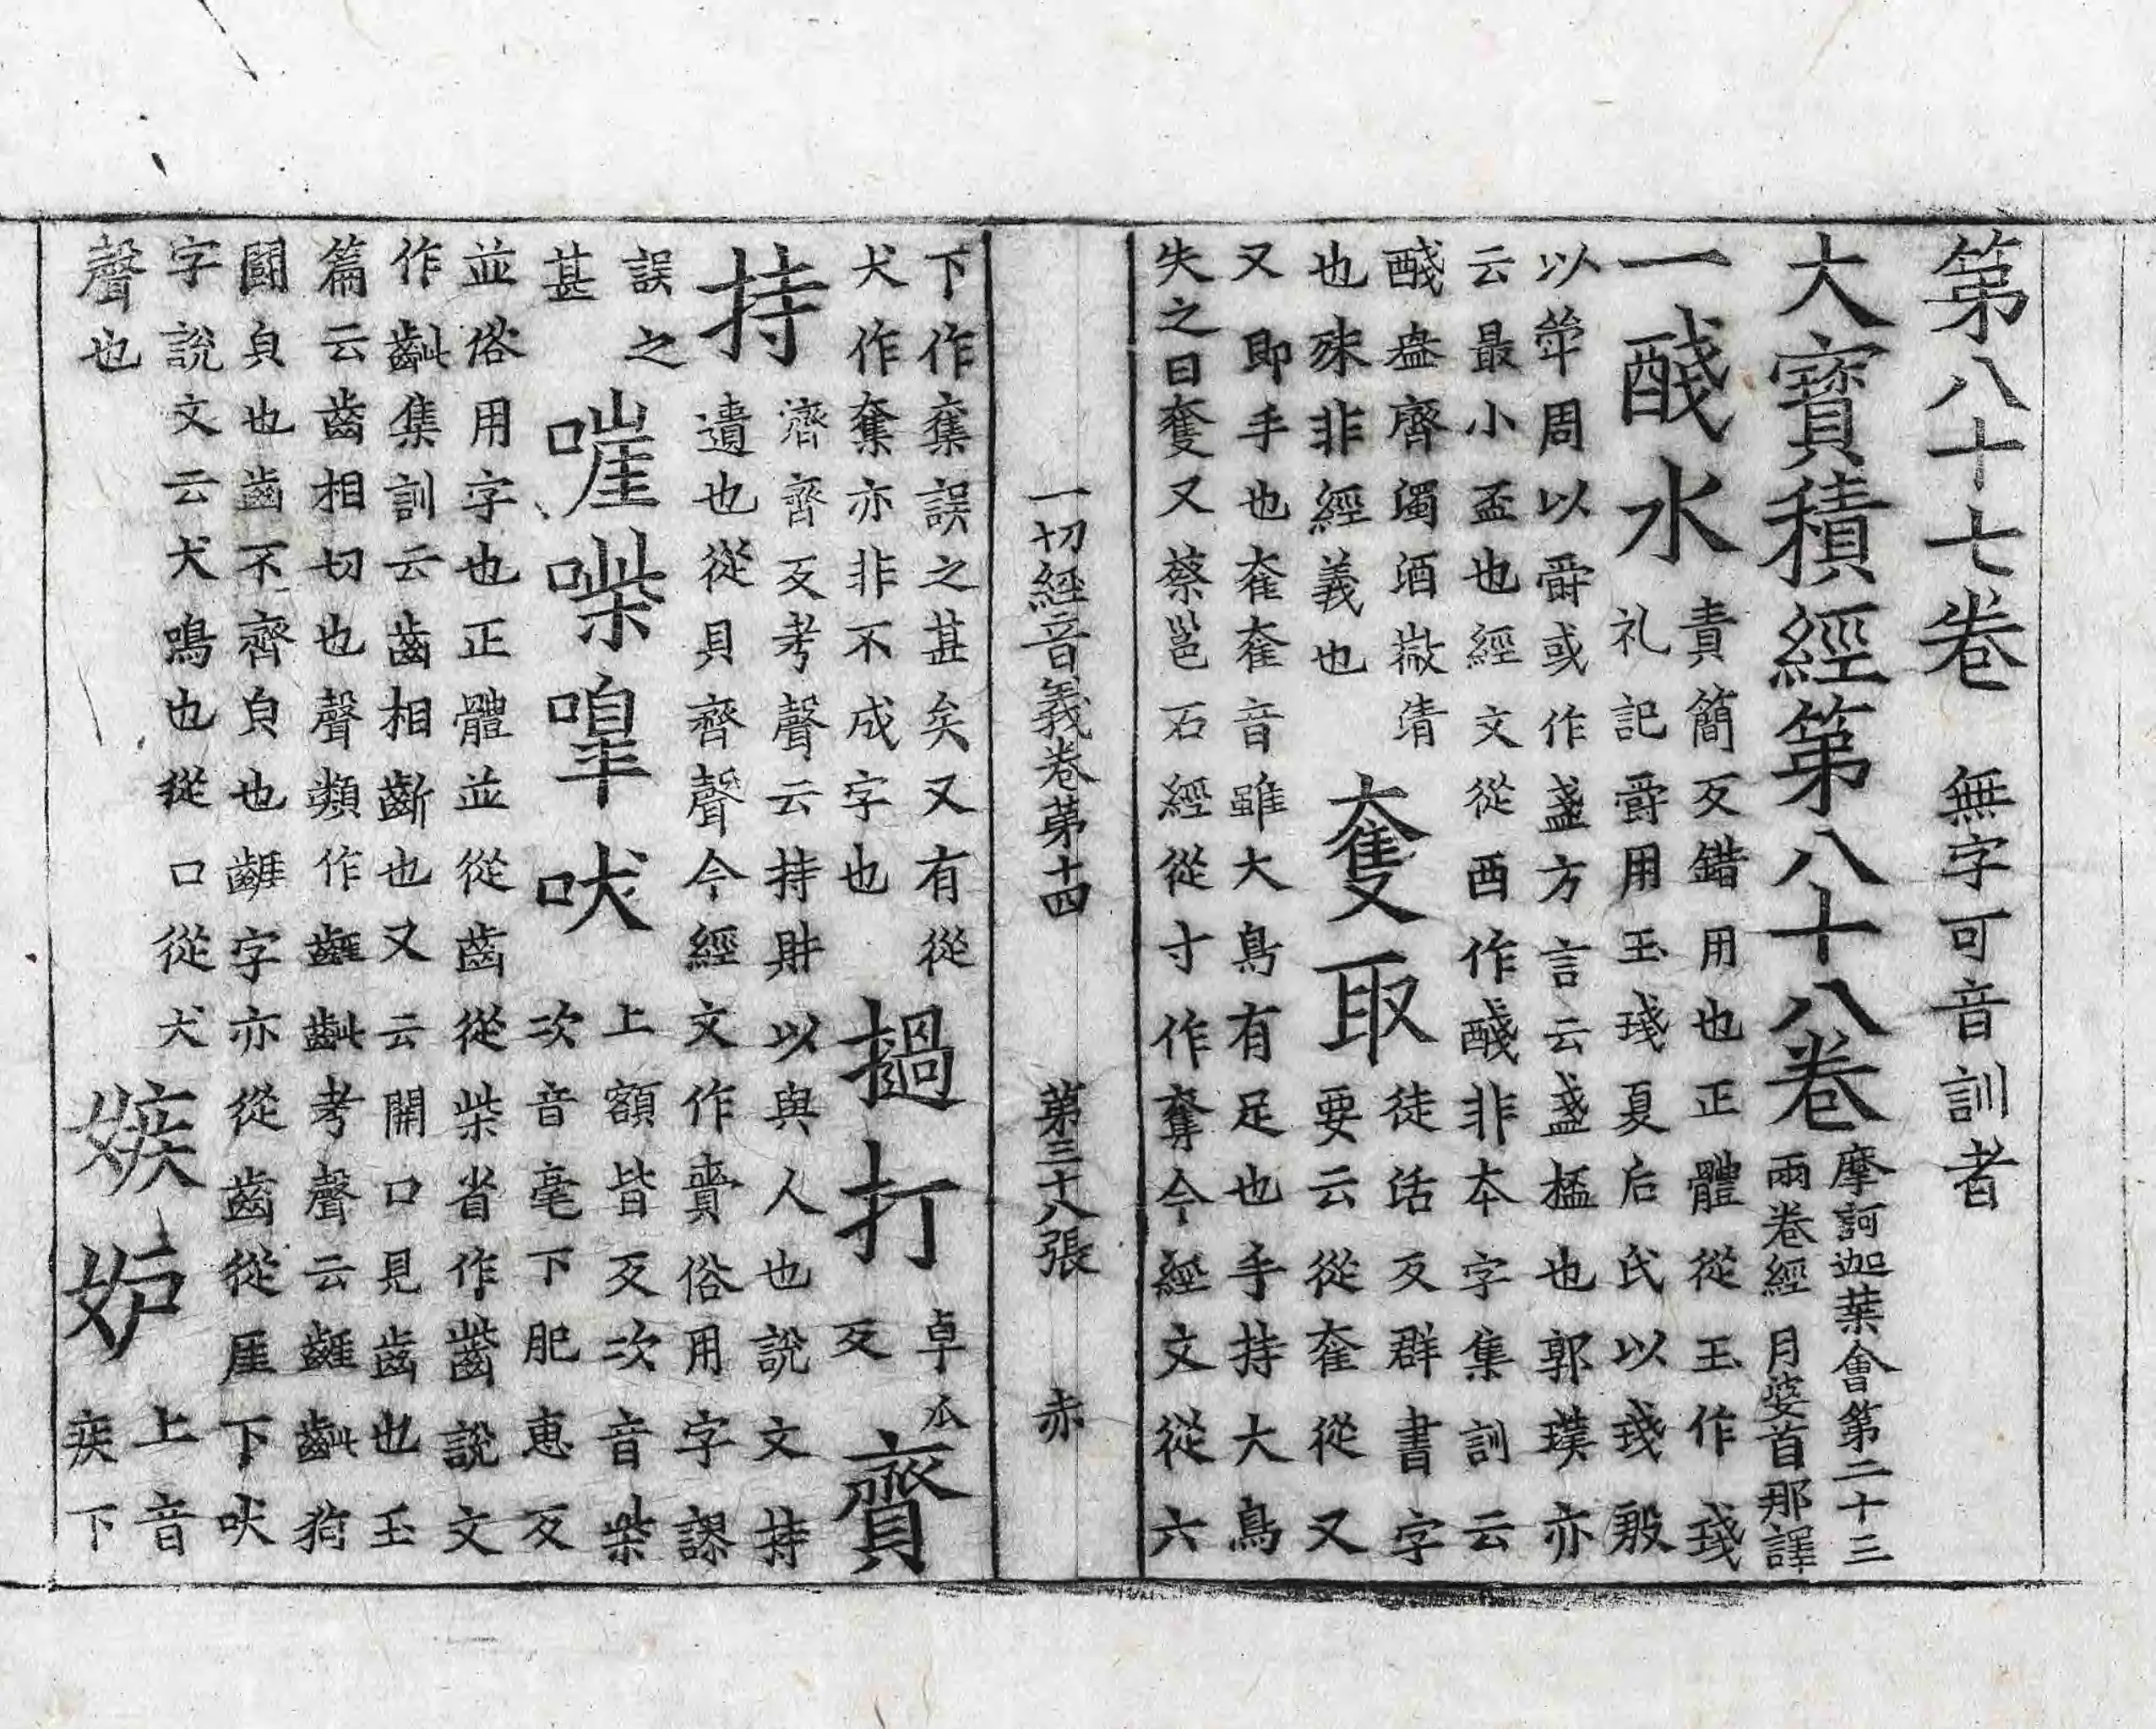 第八十七卷 無字可音訓者
大寶積經第八十八卷 摩訶迦葉會第二十三
兩卷經 月婆首那譯
一醆水 責簡反錯用也正體從玉作琖
礼記爵用玉琖夏后氏以琖殷
以斝周以爵或作盞方言云盞㮎也郭璞亦
云最小盃也經文從酉作醆非本字集訓云
醆盎齊濁酒㣲清
也殊非經義也
奪取 徒活反群書字
要云從奞從又
又即手也奞奞音雖大鳥有足也手持大鳥
失之曰奪又蔡邕石經從寸作奪今經文從六
一切經音義卷第十四 第三十八張 赤
下作集誤之甚矣又有從
犬作奪亦非不成字也
撾打 卓瓜
反
齎
持 濟齊反考聲云持財以與人也說文持
遺也從貝齊聲今經文作賷俗用字謬
誤之
甚
嘊喍嘷吠 上額皆反次音柴
次音毫下肥惠反
並俗用字也正體並從齒從柴省作齜說文
作齜集訓云齒相齗也又云開口見齒也玉
篇云齒相切也聲類作䶧齜考聲云䶧齜狗
鬪皃也齒不齊皃也䶧字亦從齒從厓下吠
字說文云犬鳴也從口從犬
聲也
嫉妬 上音
疾下